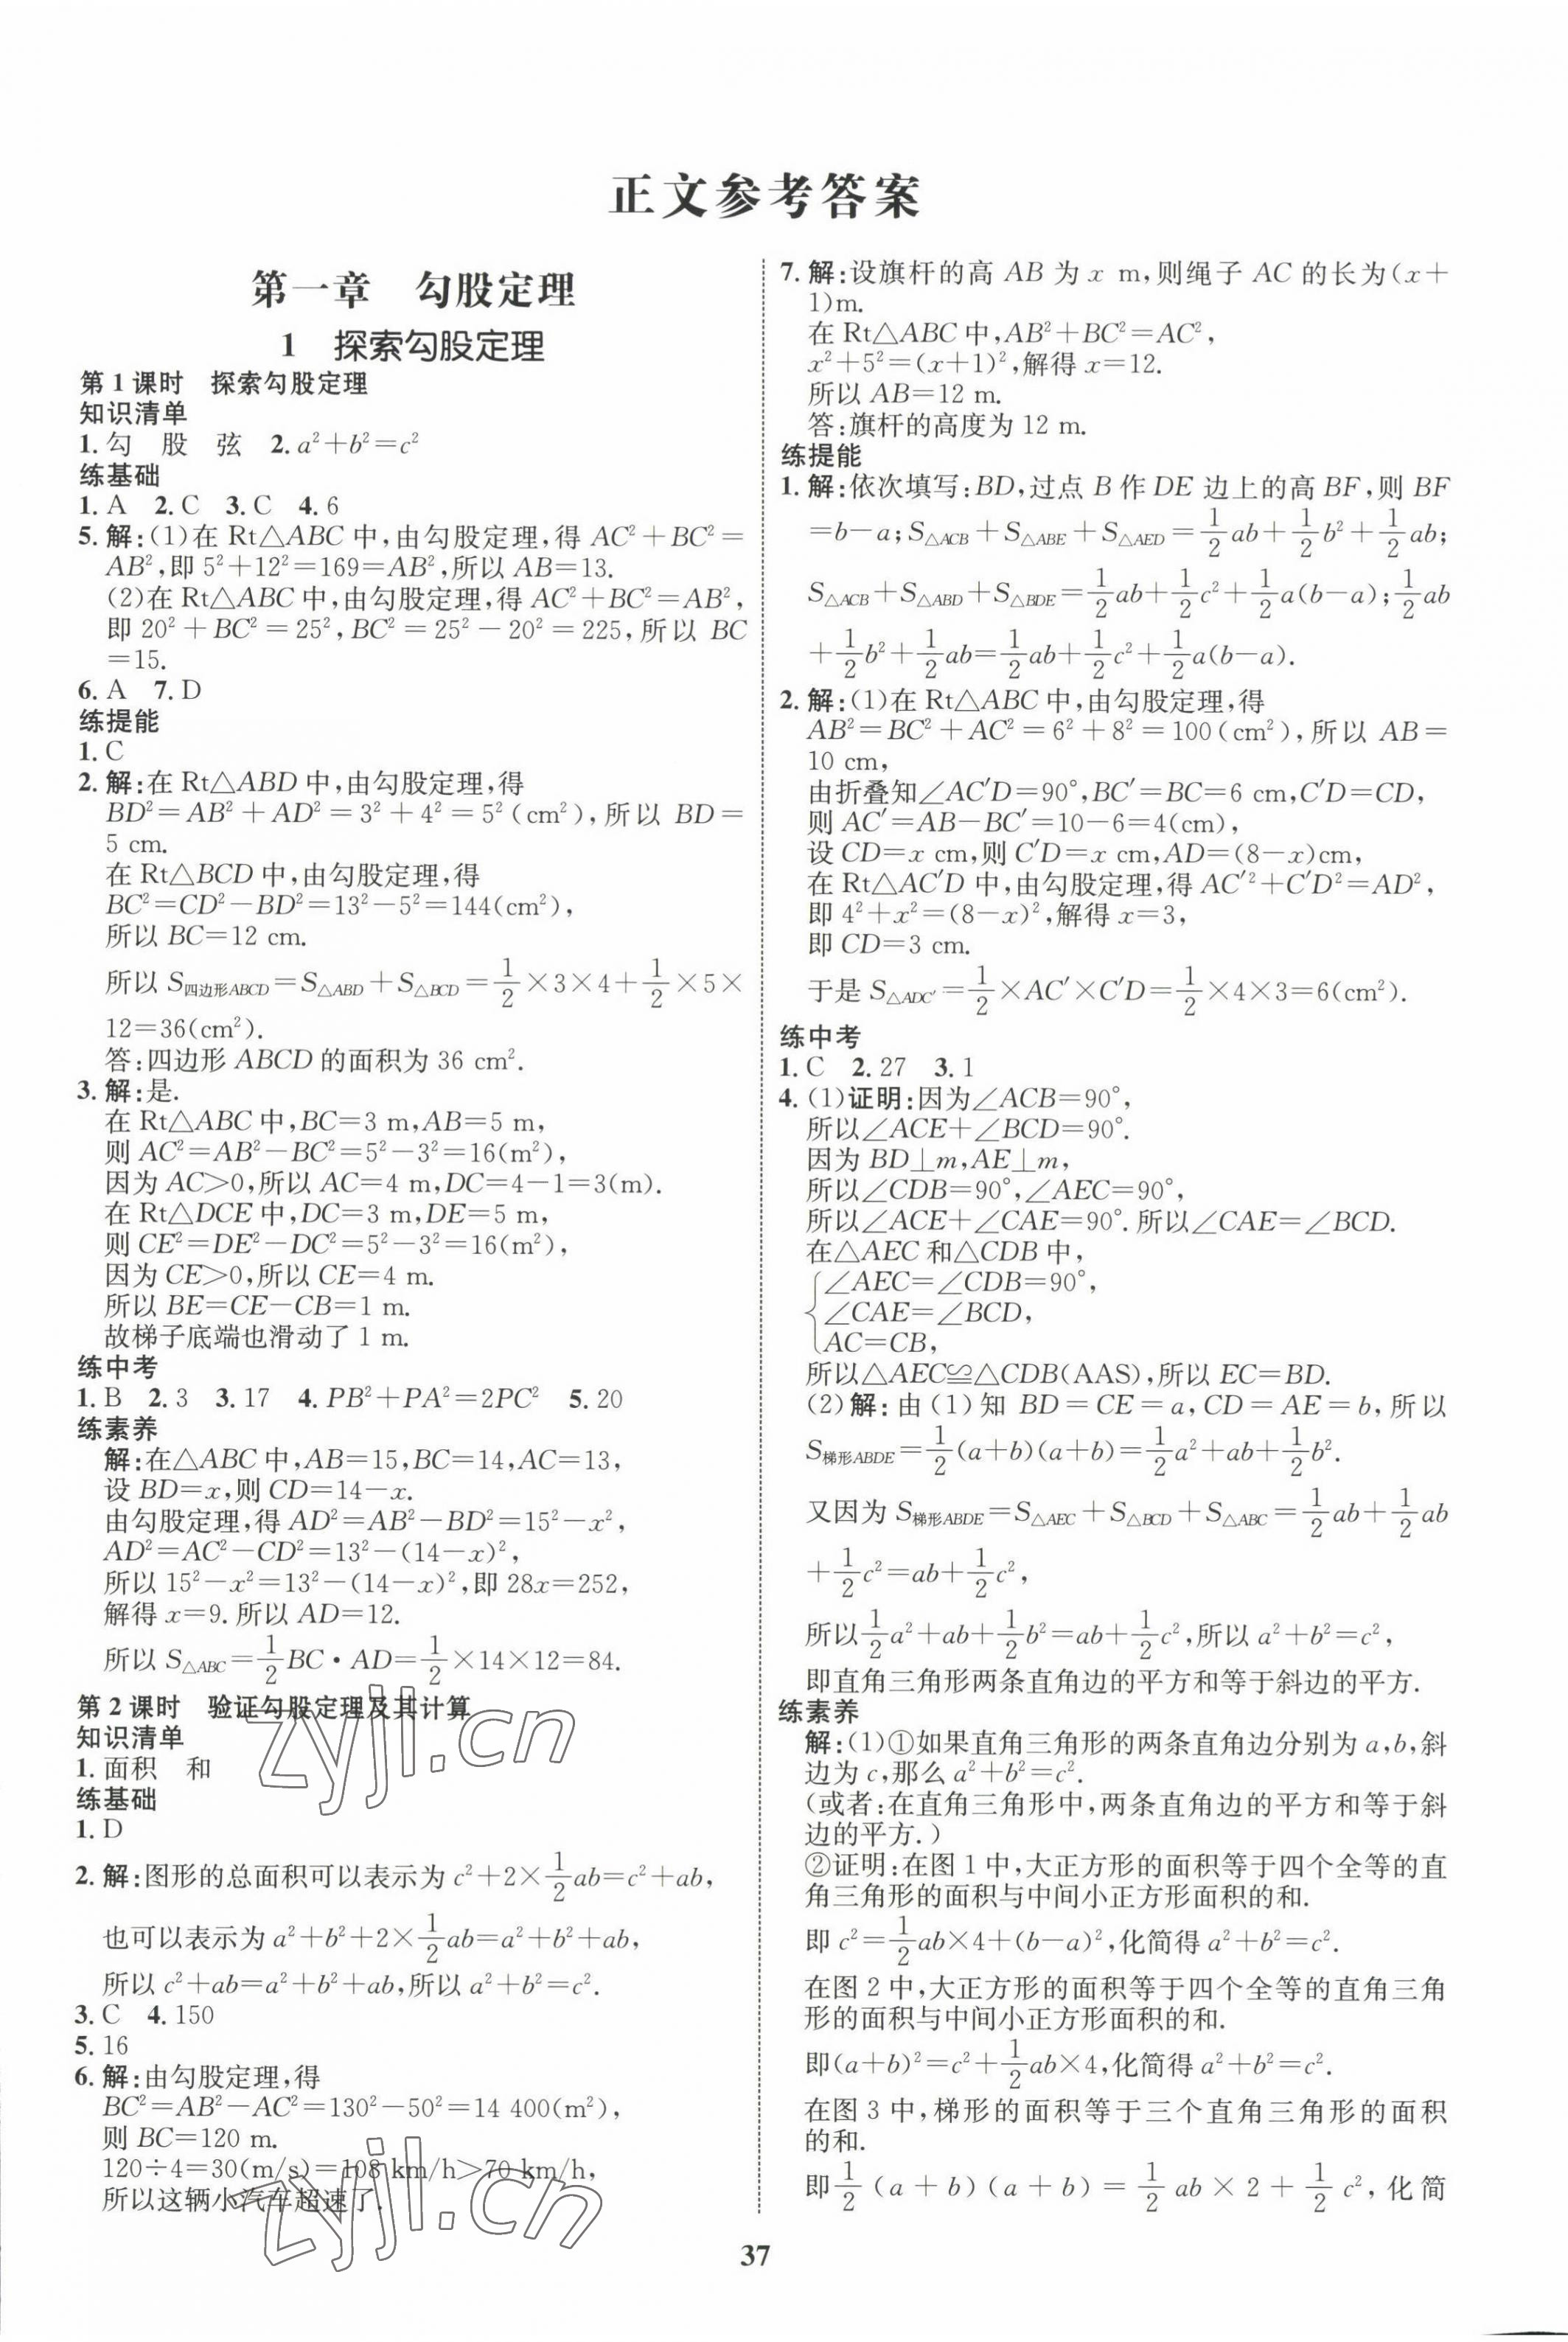 正文参考答案
第一章 勾股定理
1 探索勾股定理
第1课时 探索勾股定理
知识清单
1.勾 股 弦 2.a²+b²=c²
练基础
1.A 2.C 3.C 4.6
5.解:(1)在Rt△ABC中,由勾股定理,得AC²+BC²=
AB²,即5²+12²=169=AB²,所以AB=13.
(2)在Rt△ABC中,由勾股定理,得AC²+BC²=AB²,
即20²+BC²=25²,BC²=25²-20²=225,所以BC
=15.
6.A 7.D
练提能
1.C
2.解:在Rt△ABD中,由勾股定理,得
BD²=AB²+AD²=3²+4²=5²(cm²),所以BD=
5 cm.
在Rt△BCD中,由勾股定理,得
BC²=CD²-BD²=13²-5²=144(cm²),
所以BC=12 cm.
所以S四边形ABCD=S△ABD+S△BCD=1/2×3×4+1/2×5×
12=36(cm²).
答:四边形ABCD的面积为36 cm².
3.解:是.
在Rt△ABC中,BC=3 m,AB=5 m,
则AC²=AB²-BC²=5²-3²=16(m²),
因为AC>0,所以AC=4 m,DC=4-1=3(m).
在Rt△DCE中,DC=3 m,DE=5 m,
则CE²=DE²-DC²=5²-3²=16(m²),
因为CE>0,所以CE=4 m.
所以BE=CE-CB=1 m.
故梯子底端也滑动了1 m.
练中考
1.B 2.3 3.17 4.PB²+PA²=2PC² 5.20
练素养
解:在△ABC中,AB=15,BC=14,AC=13,
设BD=x,则CD=14-x.
由勾股定理,得AD²=AB²-BD²=15²-x²,
AD²=AC²-CD²=13²-(14-x)²,
所以15²-x²=13²-(14-x)²,即28x=252,
解得x=9.所以AD=12.
所以S△ABC=1/2BC·AD=1/2×14×12=84.
第2课时 验证勾股定理及其计算
知识清单
1.面积 和
练基础
1.D
2.解:图形的总面积可以表示为c²+2×1/2ab=c²+ab,
也可以表示为a²+b²+2×1/2ab=a²+b²+ab,
所以c²+ab=a²+b²+ab,所以a²+b²=c².
3.C 4.150
5.16
6.解:由勾股定理,得
BC²=AB²-AC²=130²-50²=14 400(m²),
则BC=120 m.
120÷4=30(m/s)=108 km/h>70 km/h,
所以这辆小汽车超速了.
7.解:设旗杆的高AB为x m,则绳子AC的长为(x+
1)m.
在Rt△ABC中,AB²+BC²=AC²,
x²+5²=(x+1)²,解得x=12.
所以AB=12 m.
答:旗杆的高度为12 m.
练提能
1.解:依次填写:BD,过点B作DE边上的高BF,则BF
=b-a;S△ACB+S△ABE+S△AED=1/2ab+1/2b²+1/2ab;
S△ACB+S△ABD+S△BDE=1/2ab+1/2c²+1/2a(b-a);1/2ab
+1/2b²+1/2ab=1/2ab+1/2c²+1/2a(b-a).
2.解:(1)在Rt△ABC中,由勾股定理,得
AB²=BC²+AC²=6²+8²=100(cm²),所以AB=
10 cm,
由折叠知∠AC′D=90°,BC′=BC=6 cm,C′D=CD,
则AC′=AB-BC′=10-6=4(cm),
设CD=x cm,则C′D=x cm,AD=(8-x)cm,
在Rt△AC′D中,由勾股定理,得AC′²+C′D²=AD²,
即4²+x²=(8-x)²,解得x=3,
即CD=3 cm.
于是S△ADC′=1/2×AC′×C′D=1/2×4×3=6(cm²).
练中考
1.C 2.27 3.1
4.(1)证明:因为∠ACB=90°,
所以∠ACE+∠BCD=90°.
因为BD⊥m,AE⊥m,
所以∠CDB=90°,∠AEC=90°,
所以∠ACE+∠CAE=90°.所以∠CAE=∠BCD.
在△AEC和△CDB中,
∠AEC=∠CDB=90°,
∠CAE=∠BCD,
AC=CB,
所以△AEC≌△CDB(AAS),所以EC=BD.
(2)解:由(1)知BD=CE=a,CD=AE=b,所以
S梯形ABDE=1/2(a+b)(a+b)=1/2a²+ab+1/2b².
又因为S梯形ABDE=S△AEC+S△BCD+S△ABC=1/2ab+1/2ab
+1/2c²=ab+1/2c²,
所以1/2a²+ab+1/2b²=ab+1/2c²,所以a²+b²=c²,
即直角三角形两条直角边的平方和等于斜边的平方.
练素养
解:(1)①如果直角三角形的两条直角边分别为a,b,斜
边为c,那么a²+b²=c².
(或者:在直角三角形中,两条直角边的平方和等于斜
边的平方.)
②证明:在图1中,大正方形的面积等于四个全等的直
角三角形的面积与中间小正方形面积的和.
即c²=1/2ab×4+(b-a)²,化简得a²+b²=c².
在图2中,大正方形的面积等于四个全等的直角三角
形的面积与中间小正方形面积的和.
即(a+b)²=c²+1/2ab×4,化简得a²+b²=c².
在图3中,梯形的面积等于三个直角三角形的面积
的和.
即1/2(a+b)(a+b)=1/2ab×2+1/2c²,化简
37
zyjl.cn
zyjl.cn